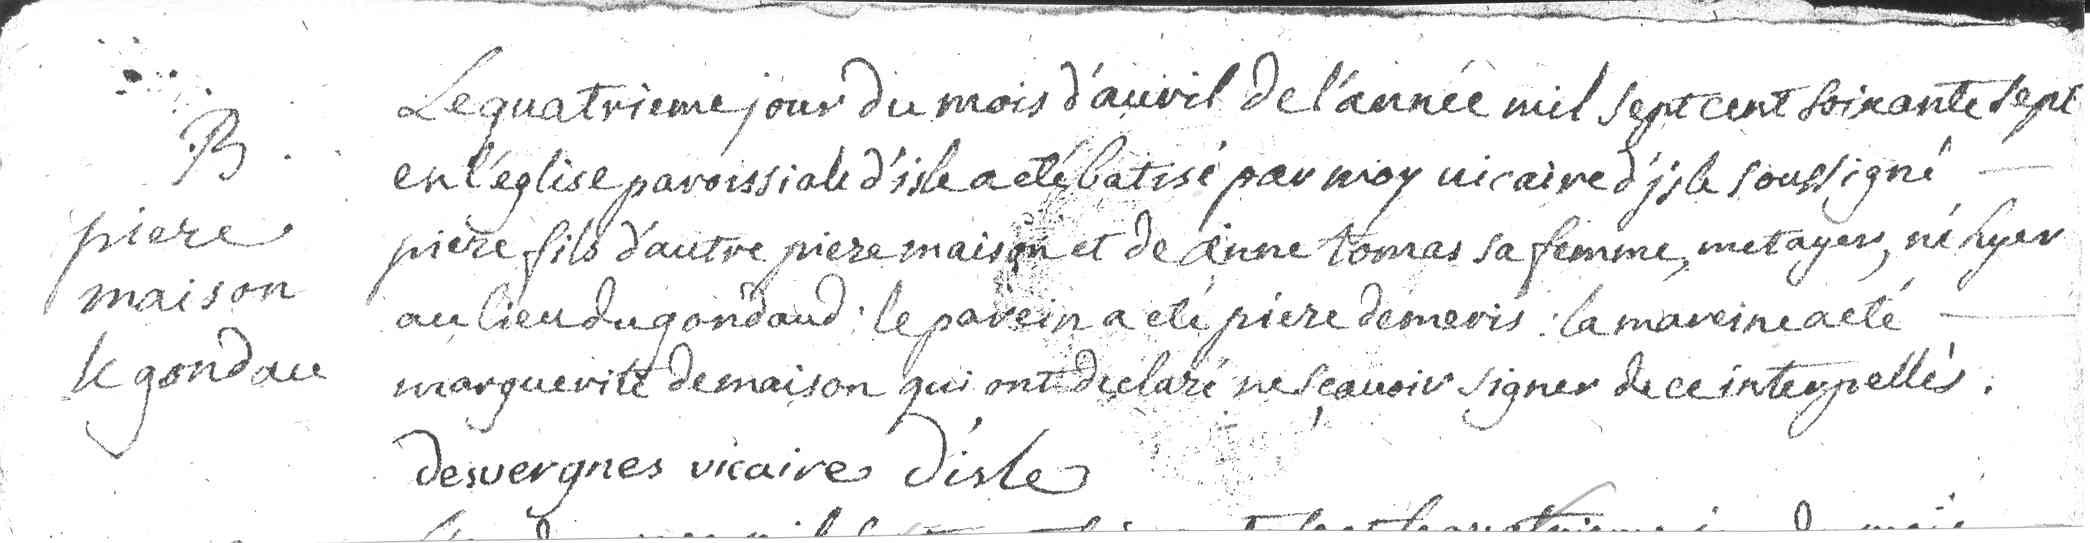 B.
piere
maison
le gondau
Le quatrieme jour du mois d'auvril de l'année mil sept cent soixante sept
en l'église paroissiale d'isle a eté batisé par moy vicaire d'jsle soussigné
piere fils d'autre piere maison et de anne tomas sa femme, metayers, né hyer
au lieu du gondaud : le parein a eté piere demeris : la mareine a eté
marguerite demaison qui ont declaré ne sçavoir signer de ce interpellés.
desvergnes vicaire d'isle